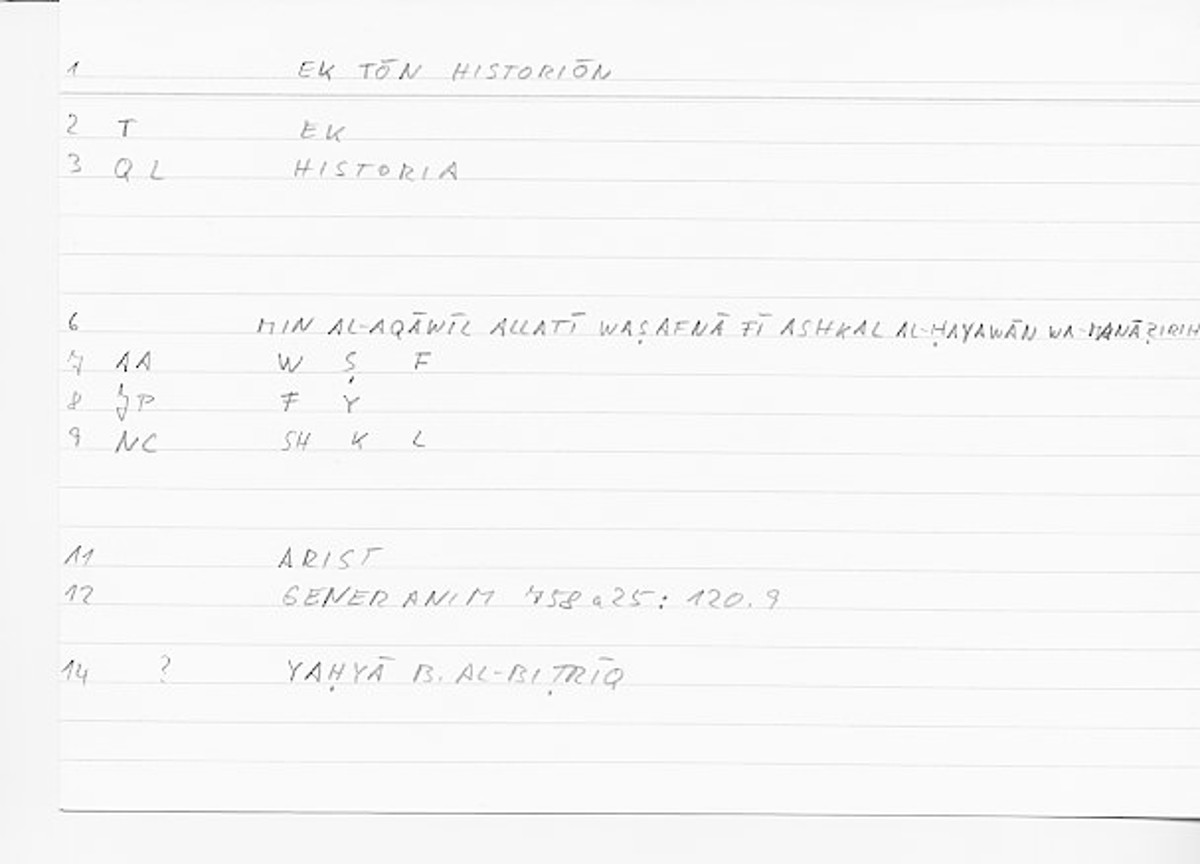 1 EK TŌN HISTORIŌN
2 T EK
3 Q L HISTORIA
6 MIN AL-AQĀWĪL ALLATĪ WAṢAFNĀ FĪ ASHKAL AL-ḤAYAWĀN WA-MANĀẒIRIH
7 AA W Ṣ F
8 JP F Y
9 NC SH K L
11 ARIST
12 GENER ANIM 758a25: 120.9
14 ? YAḤYĀ B. AL-BIṬRĪQ